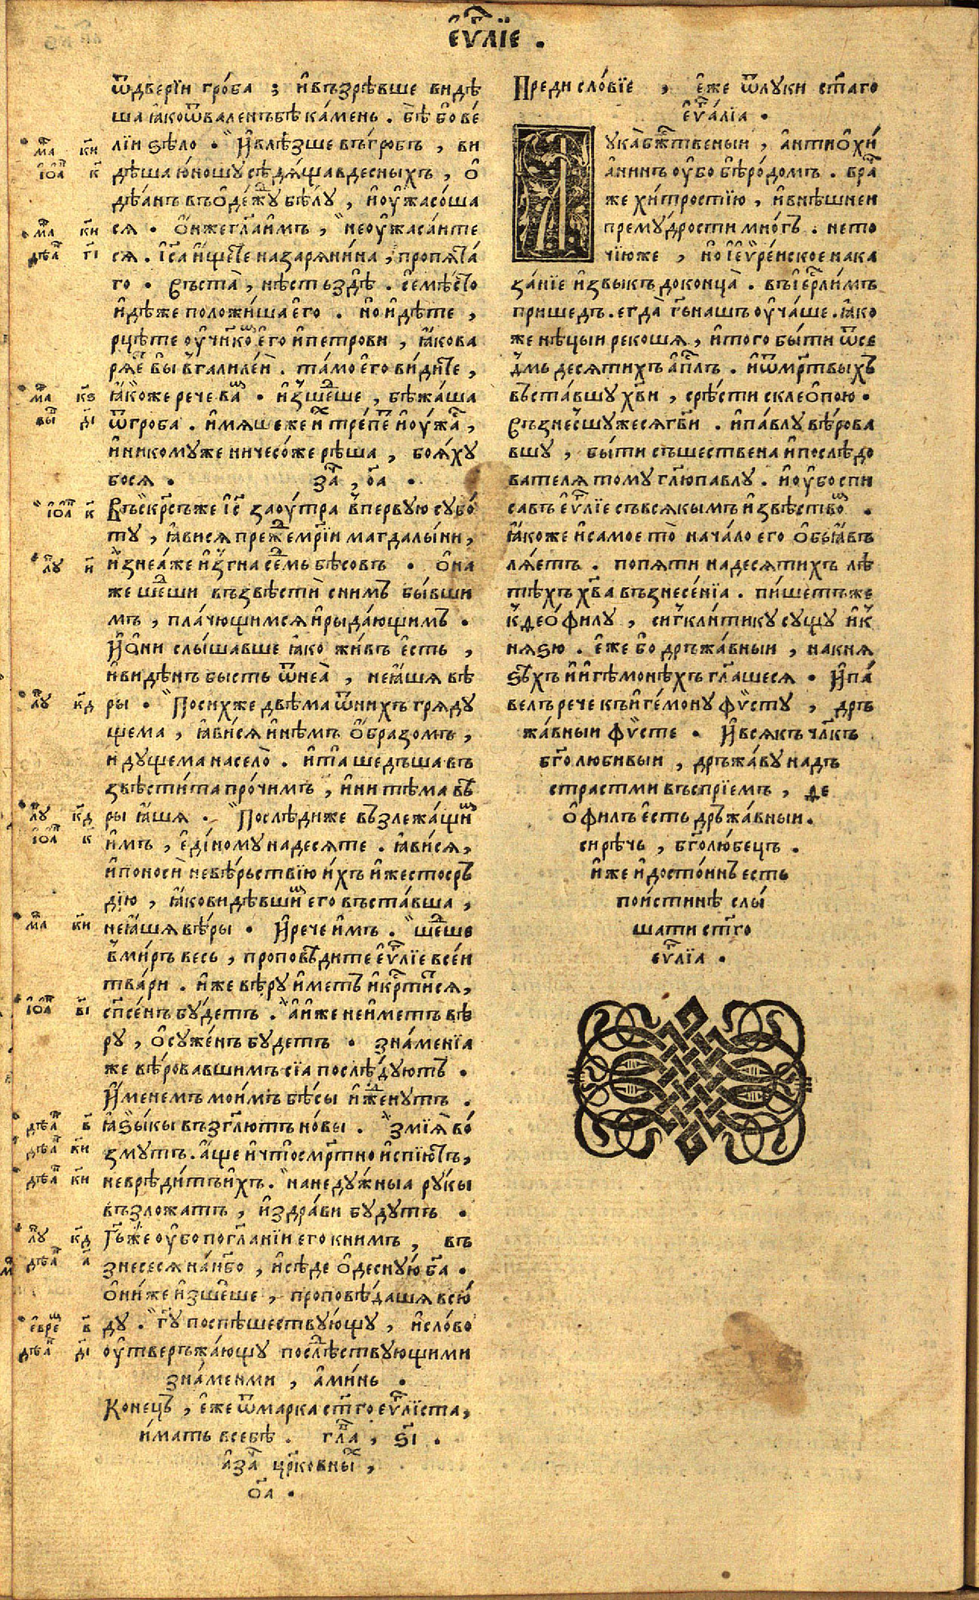 еѵⷢ҇лїе .
ѿдверїи гро́ба ; и҆възрѣвше видѣ
ша ꙗкоѿваленъбѣ ка́мень . бѣ бо ве́
лїи ѕѣло . И҆влѣзше въгробъ , ви
дѣша ю́ношу сѣдѧ́ща вдесныхъ , о҆
дѣанъ въоде́ждꙋ бѣлу , и҆оужасо́ша
сѧ . О҆нжеглаимъ , неоужаса́ите
сѧ . І҆са и҆щете назарѧни́на , пропѧ́та
го . въста̀ , нѣстьздѣ . се мѣсто
идѣже положи́ша его . но и҆дѣте ,
рцѣте оучнкомъ его и҆петрови , ꙗкова
рѧетъ вы вгалилеи . та́мо его ви́дите ,
ꙗ҆коже рече вамъ . и҆зшедше , бѣжа́ша
ѿгроба . и҆мѧше же и҆хъ тре́петъ и҆оужасъ ,
и҆никомуже ничесо́же рѣша , боѧ́ху
босѧ . за , оа .
Въскрсъже і҆с заоутра впервую субо́
ту , ꙗвисѧ прежемрїи магдалы́ни ,
и҆знеѧже и҆згна семь бѣсовъ . О҆на
же шедши възвѣсти снимъ бы́вши
мъ , пла́чющимсѧ и҆рыда́ющимъ .
И҆о҆ни слы́шавше ꙗко живъ есть ,
и҆видѣнъ бысть ѿнеѧ̀ , неꙗшѧ вѣ
ры . Посихже двѣма ѿнихъ грѧду
щема , ꙗвисѧ и҆нѣмъ о҆бразомъ ,
идущема насело̀ . и҆та шедъша въ
звѣсти́та про́чимъ , и҆ни тѣма вѣ
ры ꙗшѧ . Послѣдиже възлежа́щимъ
и҆мъ , еди́ному надесѧте . ꙗвисѧ ,
и҆поноси невѣрьствїю и҆хъ и҆жестосръ
дїю , ꙗковидѣвшимъ его въста́вша ,
неꙗшѧ вѣры . И҆рече имъ . шедше
вмиръ весь , проповѣдите еѵⷢ҇лїе всеи
твари . и҆же вѣру и҆метъ и҆крститсѧ ,
спсе́нъ бу́детъ . а҆иже неи҆метъ вѣ
ру , о҆суже́нъ будетъ . зна́менїа
же вѣровавшимъ сїа послѣдуютъ .
И҆менемъ мои́мъ бѣсы и҆жденутъ .
ꙗзы́кы възглютъ но́вы . змїѧ̀ во́
змутъ . а҆ще и҆что смртно и҆спїютъ ,
неврѣдитъ и҆хъ . нанеду́жныа ру́кы
възложатъ , и҆здра́ви будутъ .
Гь же оубо поглании его книмъ , въ
знесесѧ нанбо , и҆сѣде о҆десную ба .
О҆ниже и҆зшедше , проповѣдашѧ всю́
ду . гу поспѣшествующу , и҆сло́во
оутвержа́ющу послѣствующими
зна́менми , а҆минь .
Коне́цъ , еже ѿмарка стго еѵⷢ҇листа ,
и҆мать всебѣ . глаⷡ , ѕі .
а҆заⷱ цр҃ковныⷯ ,
оа .
Предисло́вїе , е҆же ѿлуки стаго
еѵⷢ҇алїа .
Лука бжтвеныи , антиохи́
анинъ оубо бѣ родомъ . вра
же хи́тростїю , и҆внѣшнеи
прему́дрости мно́гъ . нето
чїюже , но і҆евре́нское нака
за́нїе и҆звыкъ доконца̀ . въі҆ерлимъ
пришедъ . егда̀ гь нашъ оуча́ше . ꙗко
же нѣцыи рекошѧ , и҆того бы́ти ѿсе
дмь десѧтихъ а҆пслъ . и҆ѿмртвыхъ
въста́вшу хви , срѣсти склео́пою .
Възнесшужесѧ гви . и҆павлу вѣрова
вшу , бы́ти съшествена и҆послѣдо
вателѧ тому глю павлу . и҆оубо спи
савъ еѵⷢ҇лїе съвсѧкымъ и҆звѣство .
ꙗкоже и҆самое то нача́ло его о҆бьꙗвъ
лѧетъ . попѧ́ти надесѧтихъ лѣ
тѣхъ хва възнесе́нїа . пи́шетъже
кѳео́филу , сигклитику сущу и҆к
нѧзю . е҆же бо държа́вныи , накнѧ
зѣхъ и҆и҆гемонѣхъ глашесѧ . И҆па́
велъ рече къи҆ге́мону фѵсту , дръ
жа́вныи фѵсте . И҆всѧкъ члкъ
бголюби́выи , дръжа́ву надъ
страстми въспрїемъ , ѳе
о҆филъ есть држа́вныи .
сирѣчь , бголюбецъ .
и҆же и҆досто́инъ есть
пои́стинѣ слы́
шати стго
еѵⷢ҇лїа .